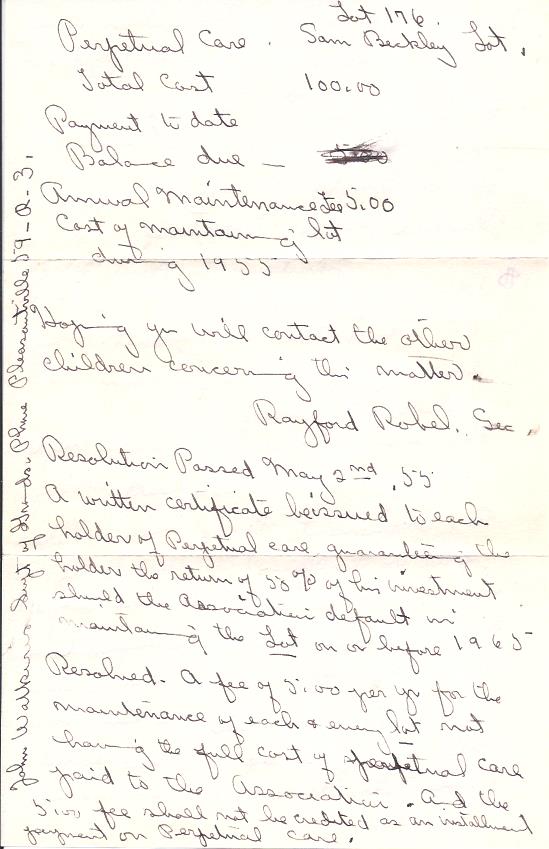 Lot 176.
Perpetual Care. Sam Beckley Lot.
Total Cost 100.00
Payment to date
Balance due — 5.00
Annual Maintenance Fee 5.00
Cost of maintaining lot
during 1955
Hoping you will contact the other
children concerning this matter.
Rayford Robel, Sec,
Resolution Passed May 2nd, 55
A written certificate be issued to each
holder of Perpetual care guaranteeing the
holder the return of 50% of his investment
should the Association default in
maintaining the Lot on or before 1965
Resolved - A fee of 5.00 per yr for the
maintenance of each & every lot not
having the full cost of perpetual care
paid to the Association. And the
5.00 fee shall not be credited as an installment
payment on Perpetual Care.
John Watkins Supt of Phone Pleasantville 59-R-3.